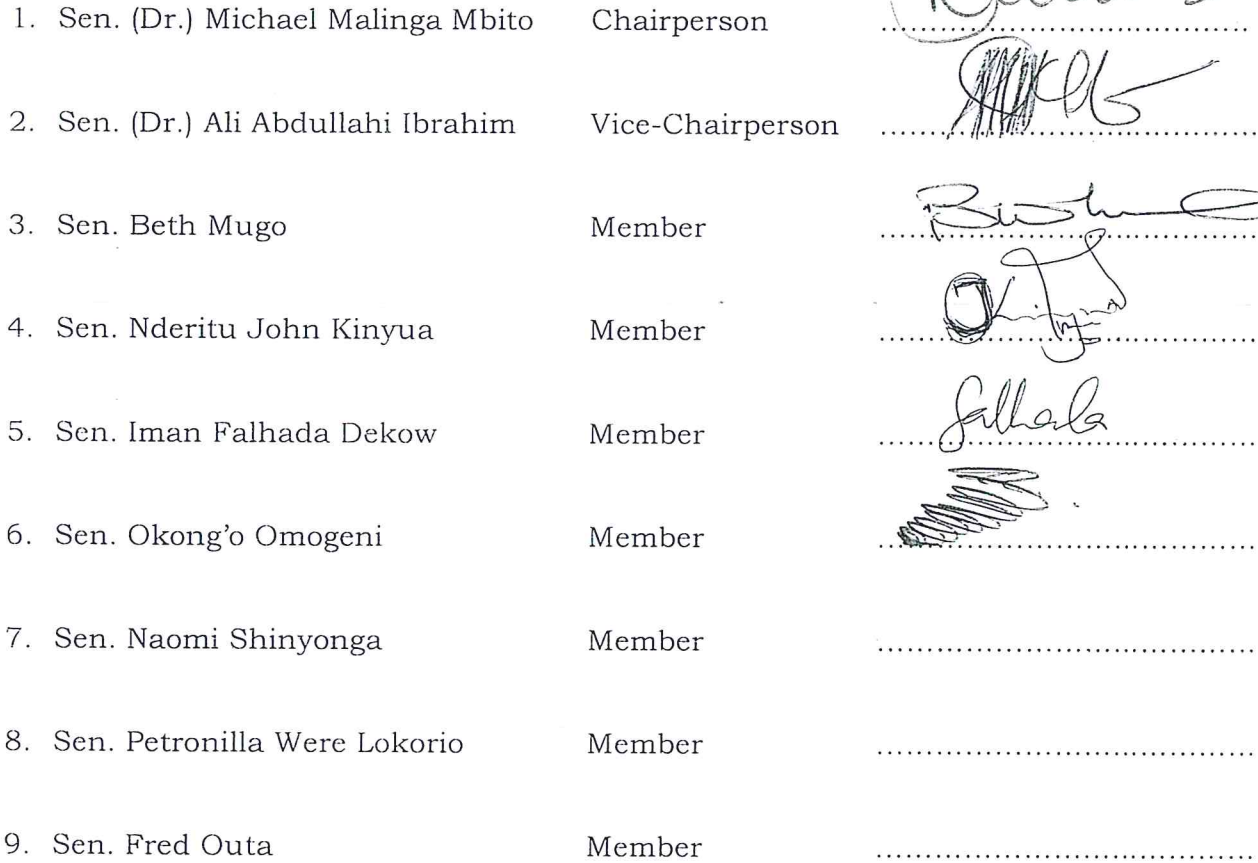 1. Sen. (Dr.) Michael Malinga Mbito Chairperson ........................................
2. Sen. (Dr.) Ali Abdullahi Ibrahim Vice-Chairperson ........................................
3. Sen. Beth Mugo Member ........................................
4. Sen. Nderitu John Kinyua Member ........................................
5. Sen. Iman Falhada Dekow Member Falhada
6. Sen. Okong'o Omogeni Member ........................................
7. Sen. Naomi Shinyonga Member ........................................
8. Sen. Petronilla Were Lokorio Member ........................................
9. Sen. Fred Outa Member ........................................